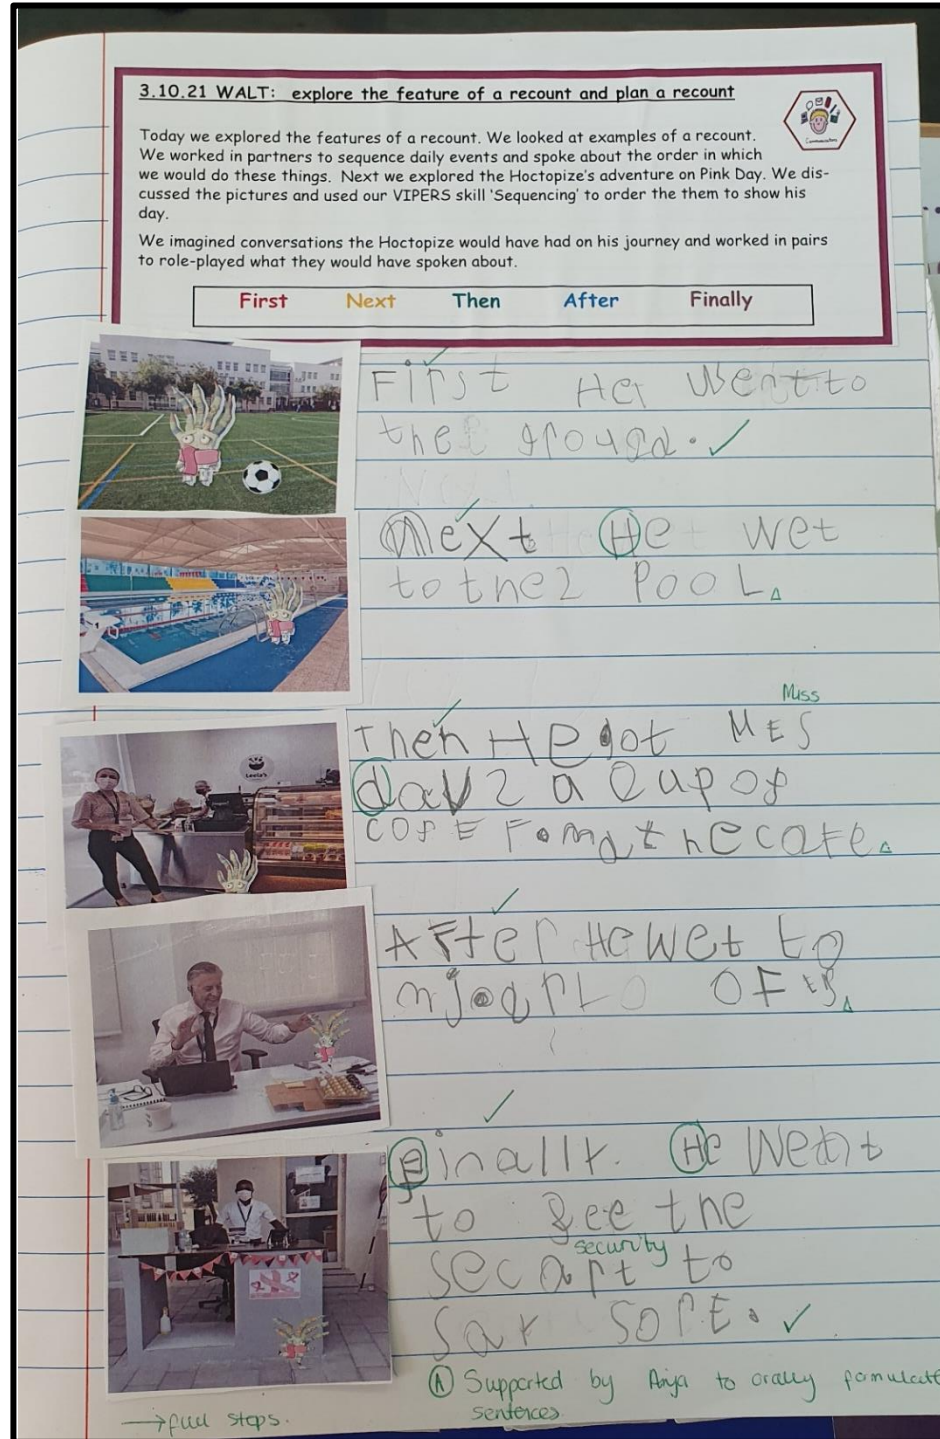 3.10.21 WALT: explore the feature of a recount and plan a recount
Today we explored the features of a recount. We looked at examples of a recount.
We worked in partners to sequence daily events and spoke about the order in which
we would do these things. Next we explored the Hoctopize's adventure on Pink Day. We dis-
cussed the pictures and used our VIPERS skill 'Sequencing' to order the them to show his
day.
We imagined conversations the Hoctopize would have had on his journey and worked in pairs
to role-played what they would have spoken about.
First Next Then After Finally
First He went to
the ground.
Next He wet
to the POOL
Miss
Then He got MES
a cup of
COFE the cafe
After He wet to
OFES
Finally. He went
to see the
security
to
Say SOPE.
A Supported by Anja to orally formulate
sentences.
→ full stops.